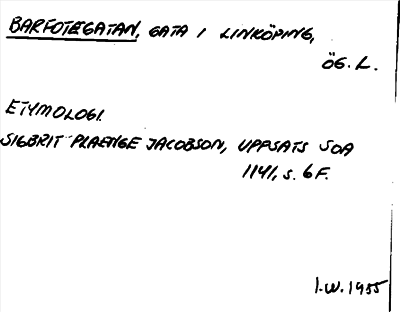 BARFOTEGATAN, GATA I LINKÖPING,
ÖG. L.
ETYMOLOGI.
SIGBRIT PLAENGE JACOBSON, UPPSATS SOA
1141, s. 6 F.
I.W. 1955